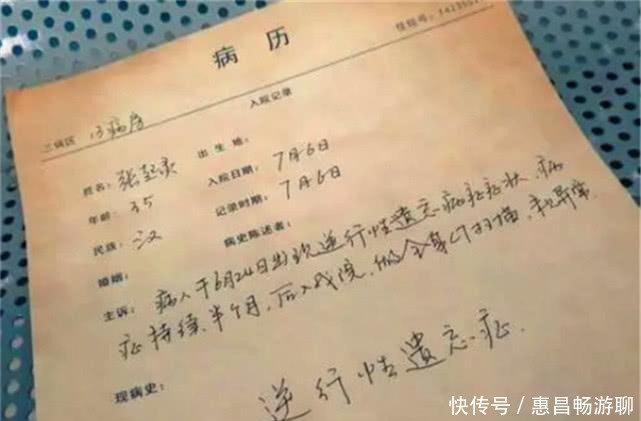 病历
住院号:
三病区 13病房
入院记录
姓名: 张起灵 出生地:
年龄: 35 入院日期: 7月6日
民族: 汉 记录时期: 7月6日
婚姻: 病史陈述者:
主诉: 病人于6月24日出现逆行性遗忘症症状,病
症持续半个月,后入我院,做全身CT扫描,未见异常.
现病史: 逆行性遗忘症.
快传号/惠昌畅游聊